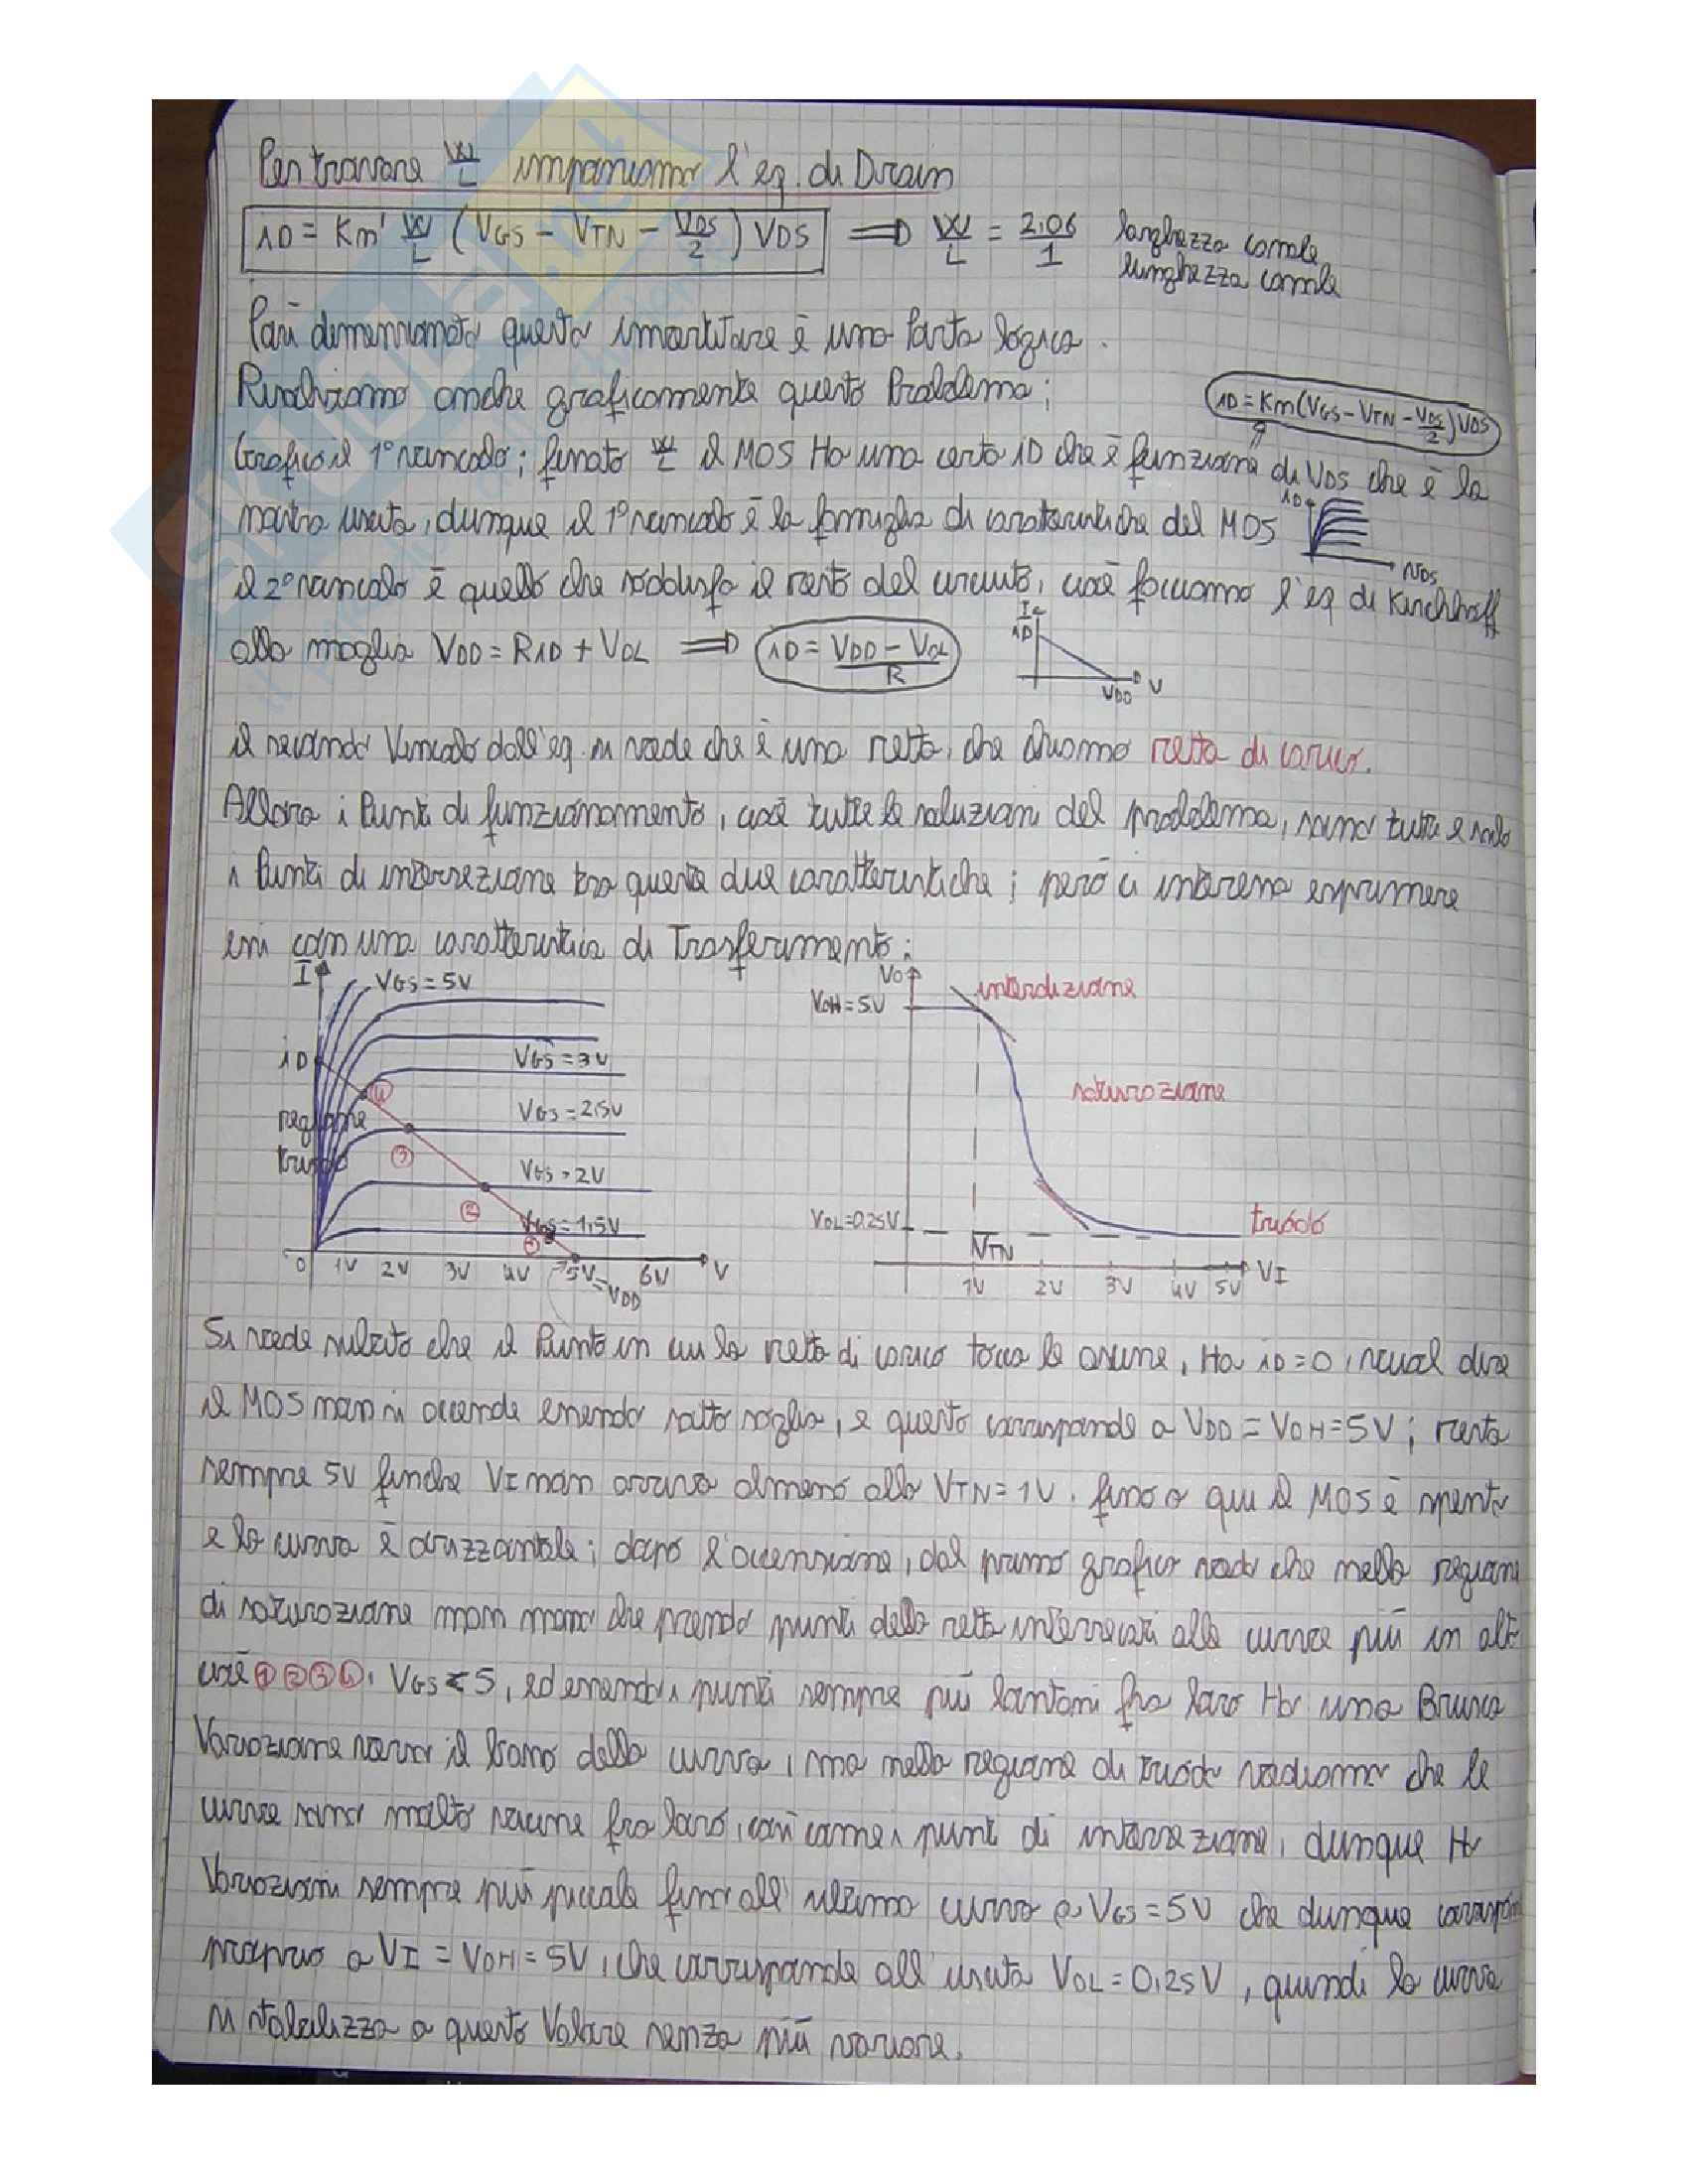 Per trovare W/L imponiamo l'eq. di Drain
iD = Kn' W/L (VGS - VTN - VDS/2) VDS ⟹ W/L = 2.06/1 larghezza canale
lunghezza canale
Così dimensionato questo invertitore è una Porta logica.
Risolviamo anche graficamente questo Problema;
iD = Kn(VGS - VTN - VDS/2)VDS
Grafico il 1° vincolo; fissato W/L il MOS Ha una certa iD che è funzione di VDS che è la
nostra uscita, dunque il 1° vincolo è la famiglia di caratteristiche del MOS
iD
VDS
il 2° vincolo è quello che soddisfa il resto del circuito, cioè facciamo l'eq di Kirchhoff
alla maglia VDD = RiD + VOL ⟹ iD = (VDD - VOL)/R
I
iD
VDD V
il secondo Vincolo dall'eq. si vede che è una retta, che chiamo retta di carico.
Allora i Punti di funzionamento, cioè tutte le soluzioni del problema, sono tutti e solo
i Punti di intersezione tra queste due caratteristiche; però ci interessa esprimere
essi con una caratteristica di Trasferimento:
I VGS = 5V
iD
VGS = 3V
④
regione
triodo
VGS = 2,5V
③
VGS = 2V
②
VGS = 1,5V
①
0 1V 2V 3V 4V 5V 6V V
VDD
VO
interdizione
VOH = 5V
saturazione
VOL = 0.25V
triodo
VTN
1V 2V 3V 4V 5V VI
Si vede subito che il Punto in cui la retta di carico tocca le ascisse, Ha iD = 0, vuol dire
il MOS non si accende essendo sotto soglia, e questo corrisponde a VDD = VOH = 5V; resta
sempre 5V finchè VI non arriva almeno alla VTN = 1V. fino a qui il MOS è spento
e la curva è orizzontale; dopo l'accensione, dal primo grafico vedo che nella regione
di saturazione man mano che prendo punti della retta intersecati alle curve più in alto
cioè ①②③④, VGS < 5, ed essendo i punti sempre più lontani fra loro Ho una Brusca
Variazione verso il basso della curva, ma nella regione di triodo vediamo che le
curve sono molto vicine fra loro, così come i punti di intersezione, dunque Ho
Variazioni sempre più piccole fino all'ultima curva a VGS = 5V che dunque
proprio a VI = VOH = 5V, che corrisponde all'uscita VOL = 0,25V, quindi la curva
si stabilizza a questo Valore senza più variare.